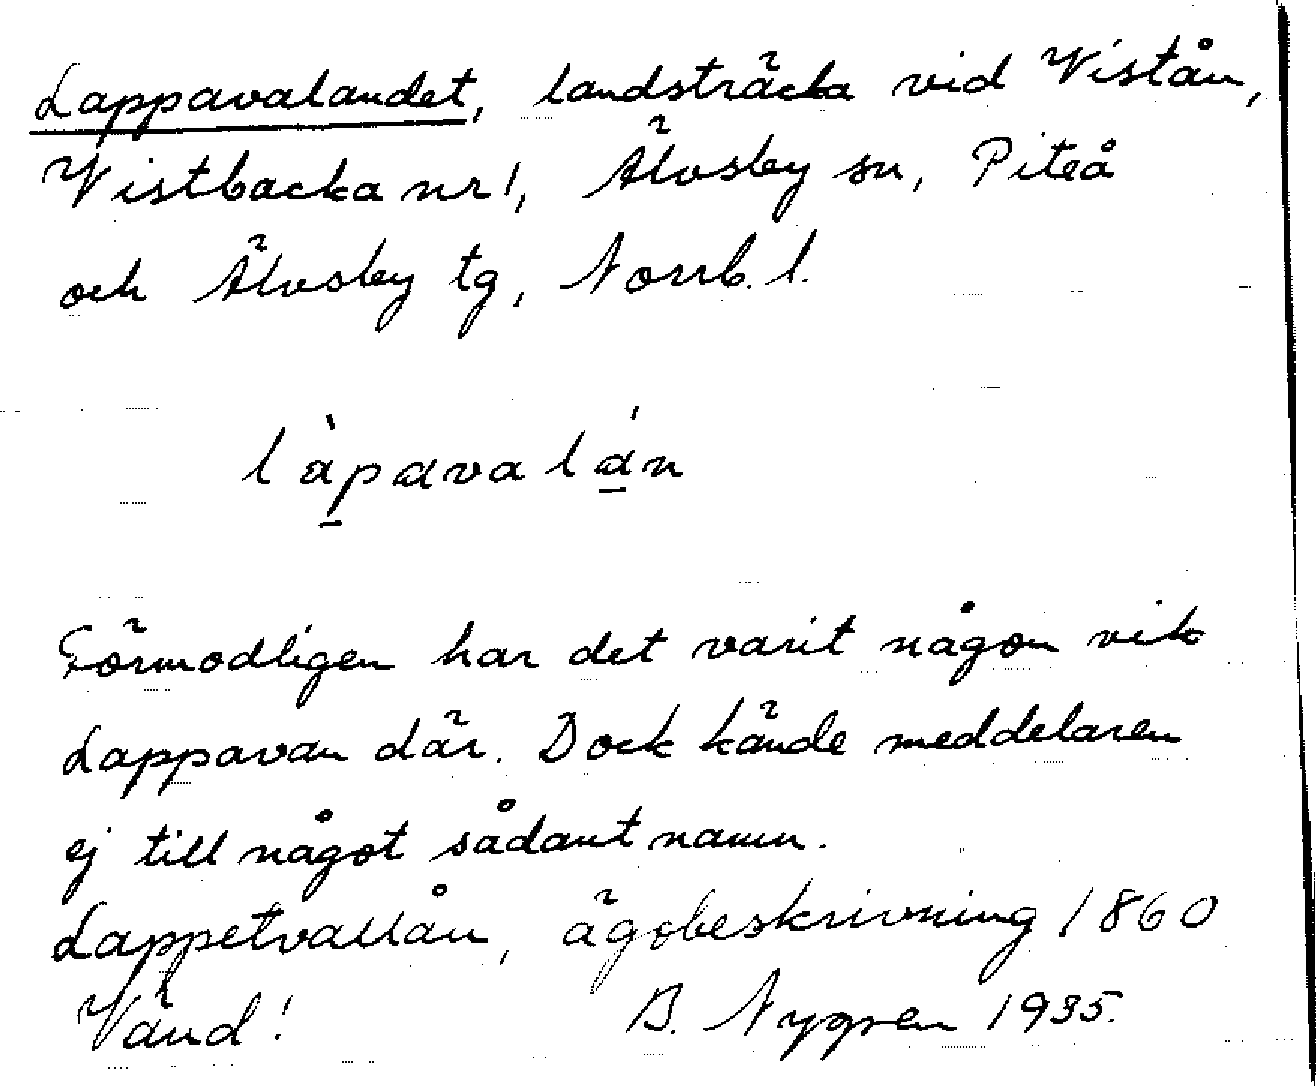 Lappavalandet, landsträcka vid Viståm,
Vistbacka nr 1, Älvsby sn, Piteå
och Älvsby tg, Norrb. l.
làpavalán
Förmodligen har det varit någon vik
Lappavan där. Dock kände meddelaren
ej till något sådant namn.
Lappetvallån, ägobeskrivning 1860
Vänd! B. Nygren 1935.